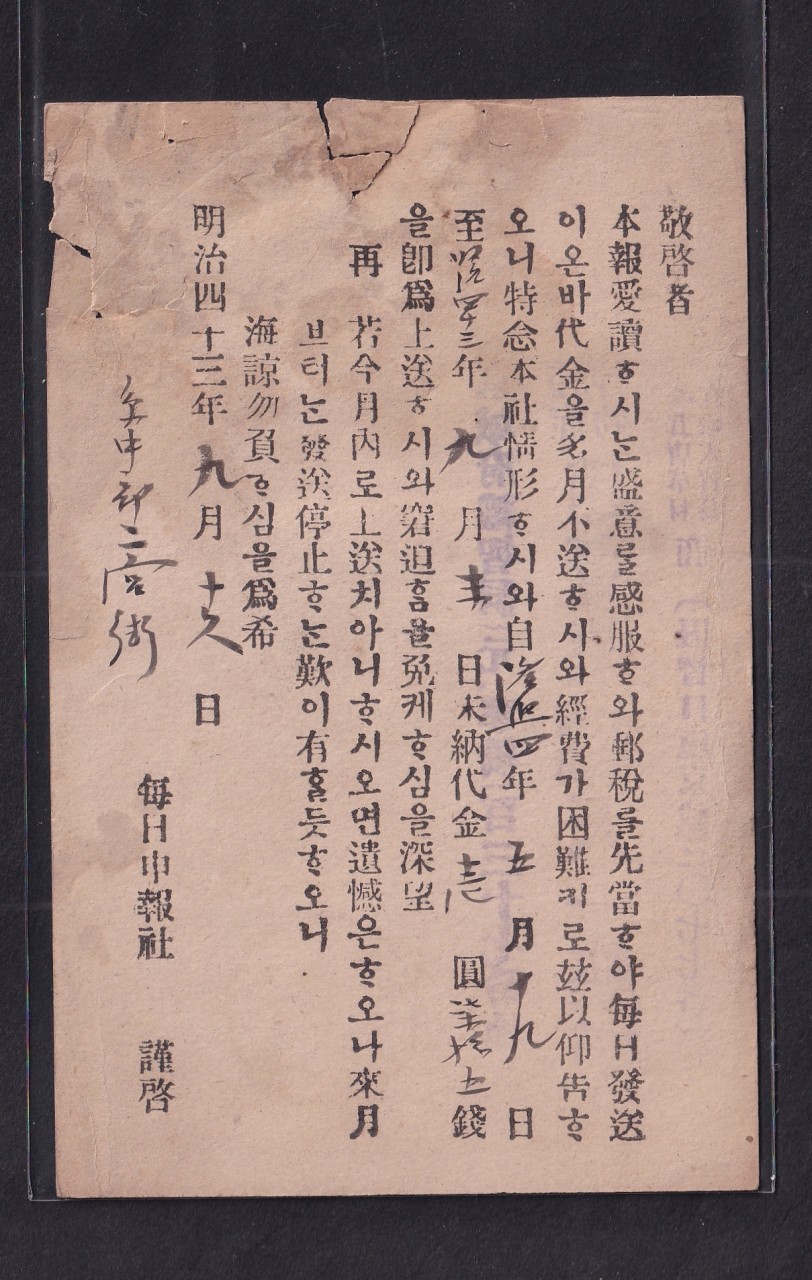 敬啓者
本報愛讀ᄒᆞ시ᄂᆞᆫ盛意ᄅᆞᆯ感服ᄒᆞ와郵稅ᄅᆞᆯ先當ᄒᆞ야每日發送
이온바代金을多月不送ᄒᆞ시와經費가困難키로玆以仰告ᄒᆞ
오니特念本社情形ᄒᆞ시와自 四年 五月十九日
至 四十三年 九月 日未納代金 圓 錢
을卽爲上送ᄒᆞ시와窘迫홈을免케ᄒᆞ심을深望
再 若今月內로上送치아니ᄒᆞ시오면遺憾은ᄒᆞ오나來月
브터ᄂᆞᆫ發送停止ᄒᆞᄂᆞᆫ歎이有ᄒᆞᆯ듯ᄒᆞ오니
海諒勿負ᄒᆞ심을爲希
明治四十三年九月十久日
每日申報社 謹啓